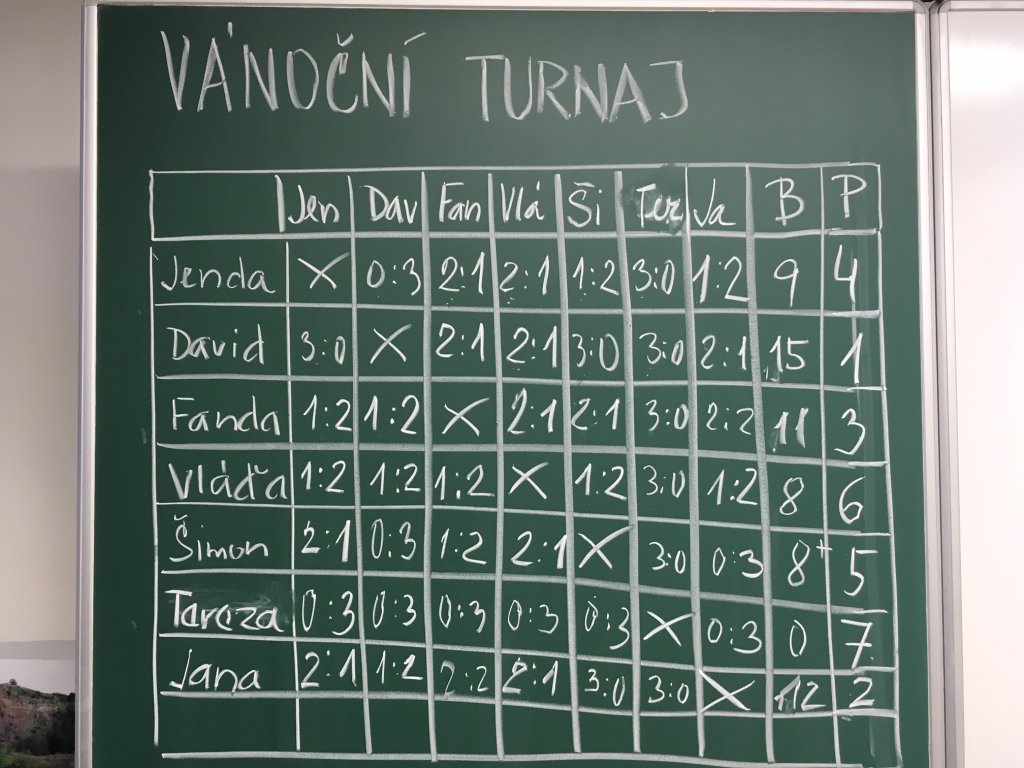 VÁNOČNÍ TURNAJ
Jen Dav Fan Vlá Ši Ter Ja B P
Jenda X 0:3 2:1 2:1 1:2 3:0 1:2 9 4
David 3:0 X 2:1 2:1 3:0 3:0 2:1 15 1
Fanda 1:2 1:2 X 2:1 2:1 3:0 2:2 11 3
Vláďa 1:2 1:2 1:2 X 1:2 3:0 1:2 8 6
Šimon 2:1 0:3 1:2 2:1 X 3:0 0:3 8+ 5
Tereza 0:3 0:3 0:3 0:3 0:3 X 0:3 0 7
Jana 2:1 1:2 2:2 2:1 3:0 3:0 X 12 2